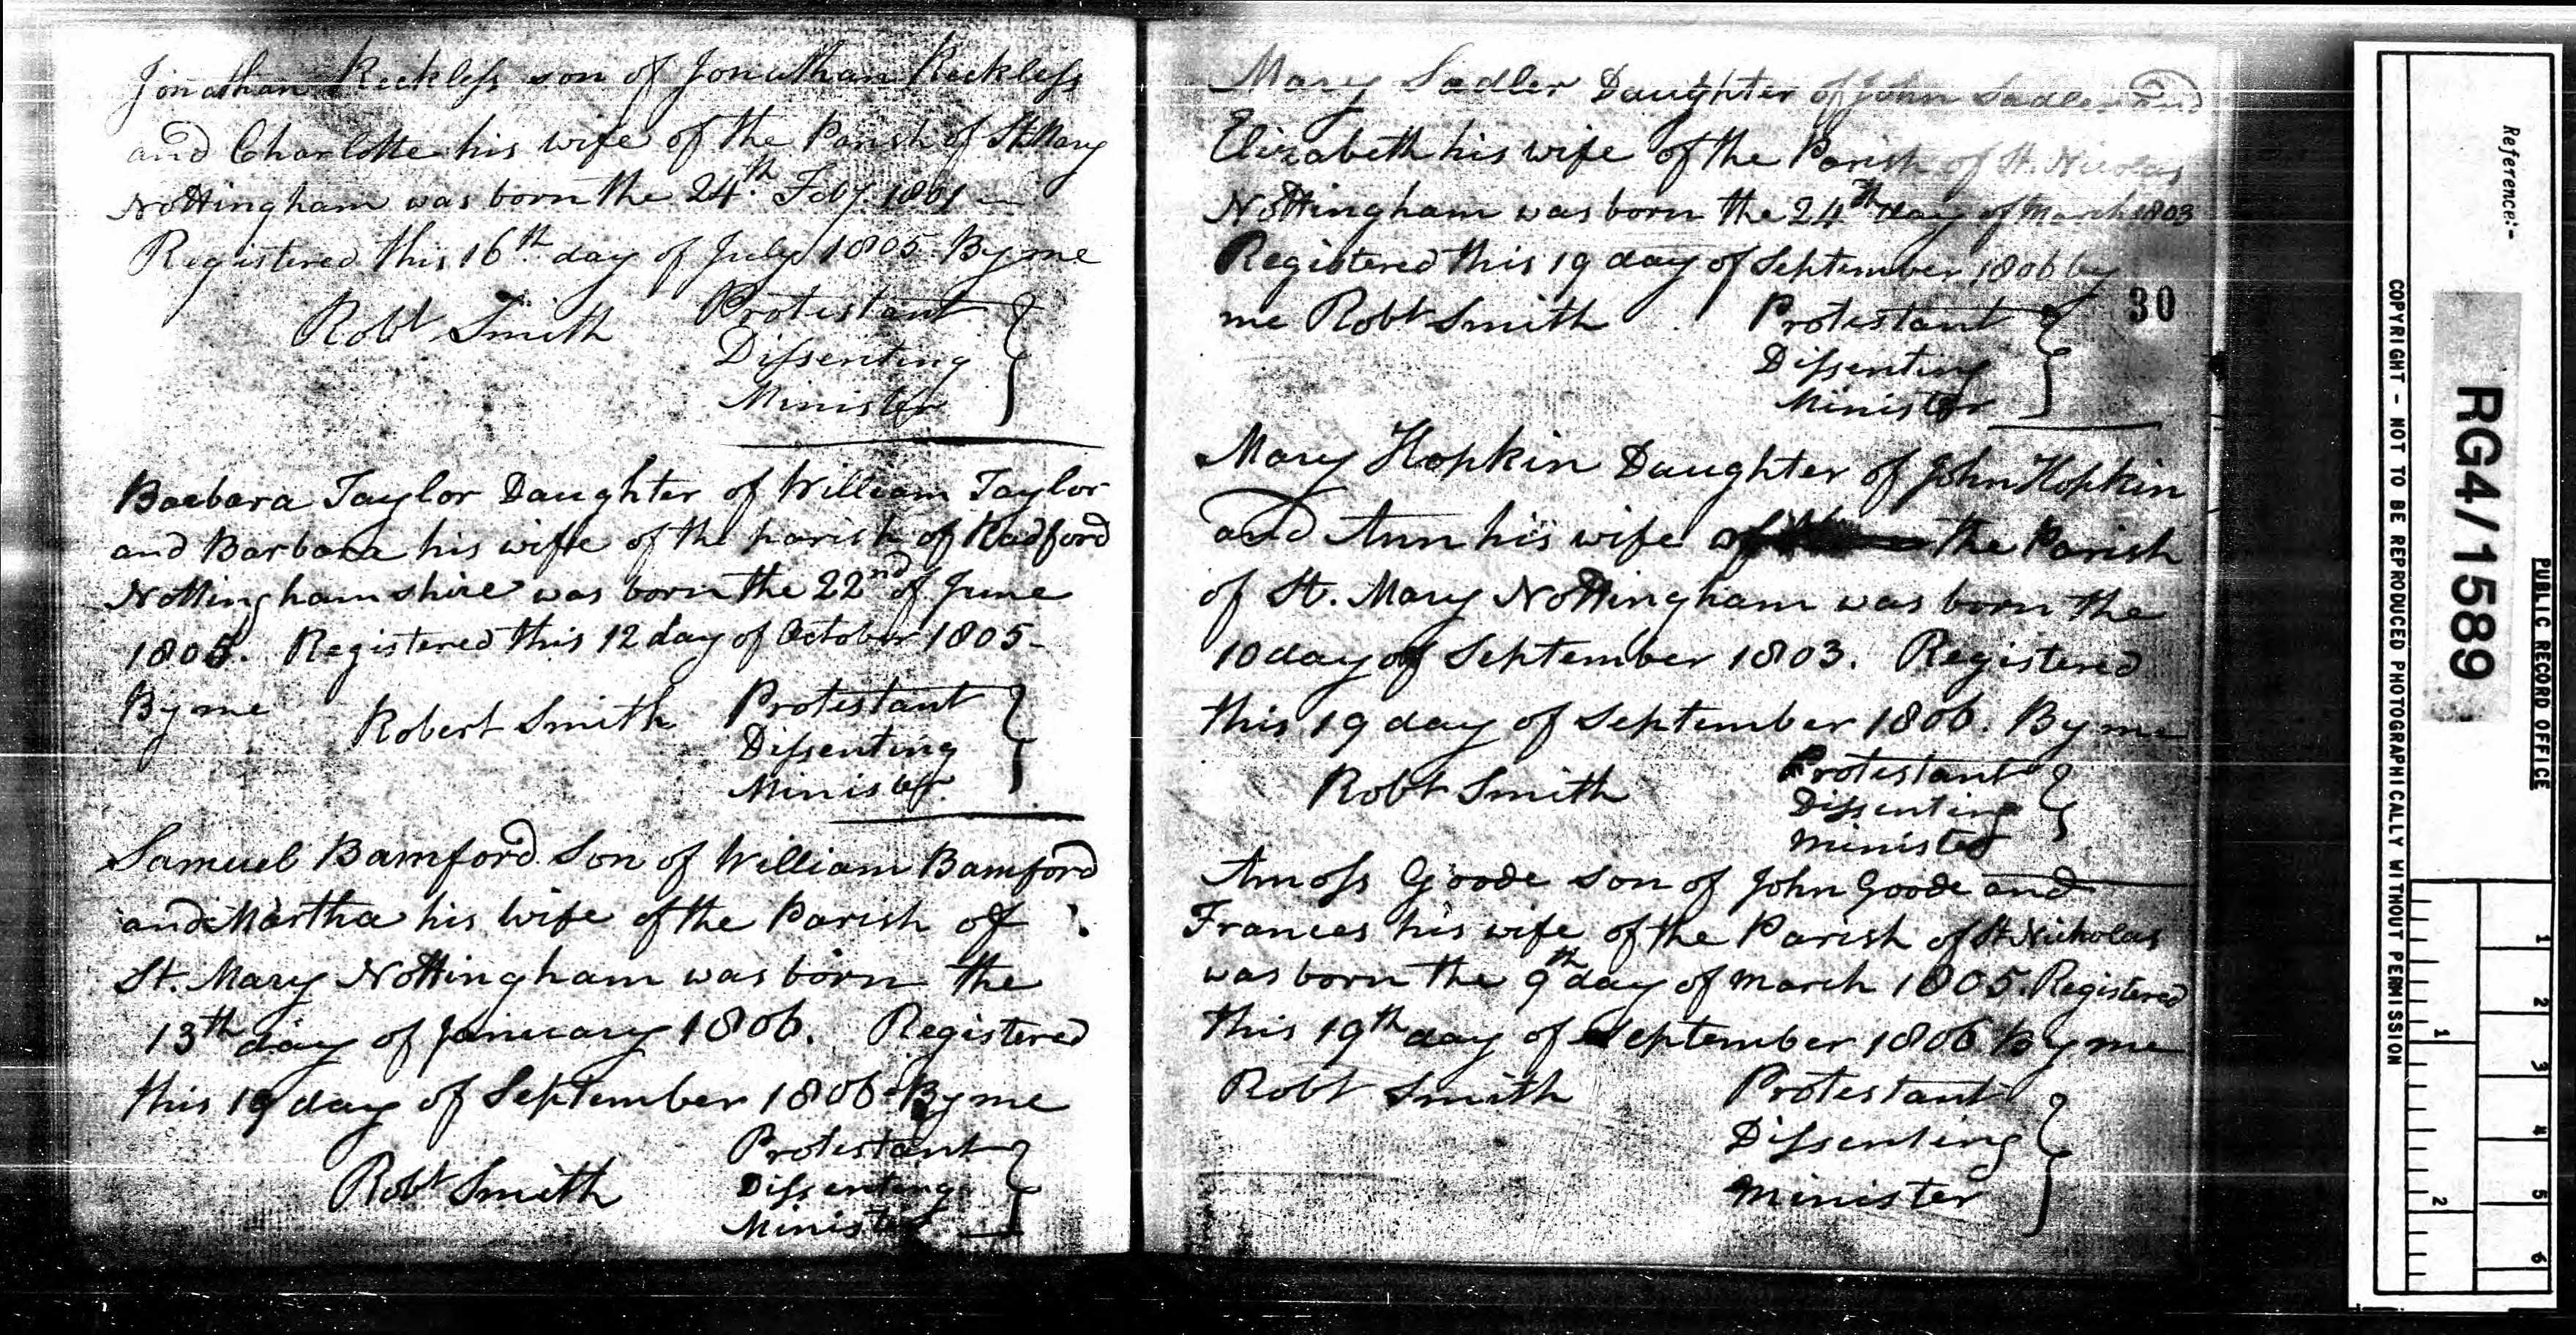 Jonathan Reckless son of Jonathan Reckless
and Charlotte his wife of the Parish of St. Mary
Nottingham was born the 24th. Feby. 1801 —
Registered this 16th. day of July 1805 By me
Robt Smith Protestant
Dissenting
Minister
Barbara Taylor Daughter of William Taylor
and Barbara his wife of the parish of Radford
Nottinghamshire was born the 22nd of June
1805. Registered this 12 day of October 1805-
By me Robert Smith Protestant
Dissenting
Minister
Samuel Bamford Son of William Bamford
and Martha his wife of the Parish of
St. Mary Nottingham was born the
13th day of January 1806. Registered
this 19 day of September 1806 By me
Robt Smith Protestant
Dissenting
Minister
Mary Sadler Daughter of John Sadler and
Elizabeth his wife of the Parish of St. Nicolas
Nottingham was born the 24th day of March 1803
Registered this 19 day of September 1806 by
me Robt Smith Protestant
Dissenting
Minister
30
Mary Hopkin Daughter of John Hopkin
and Ann his wife of the Parish
of St. Mary Nottingham was born the
10 day of September 1803. Registered
this 19 day of September 1806. By me
Robt Smith Protestant
Dissenting
Minister
Amoss Goode son of John Goode and
Frances his wife of the Parish of St Nicholas
was born the 9th day of March 1805. Registered
this 19th day of September 1806 By me
Robt Smith Protestant
Dissenting
Minister
PUBLIC RECORD OFFICE
Reference:-
RG4/1589
COPYRIGHT - NOT TO BE REPRODUCED PHOTOGRAPHICALLY WITHOUT PERMISSION
1 2 3 4 5 6
1 2